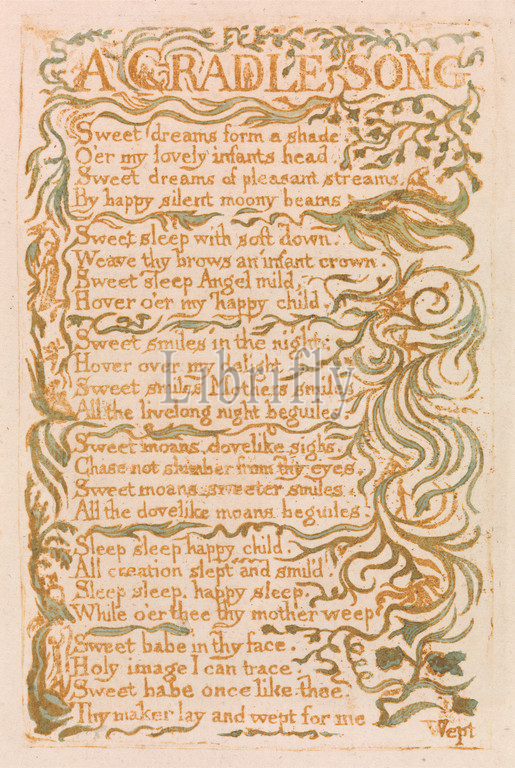 A CRADLE SONG
Sweet dreams form a shade
O'er my lovely infants head.
Sweet dreams of pleasant streams.
By happy silent moony beams
Sweet sleep with soft down.
Weave thy brows an infant crown.
Sweet sleep Angel mild,
Hover o'er my happy child.
Sweet smiles in the night,
Hover over my delight.
Sweet smiles Mothers smiles
All the livelong night beguiles.
Sweet moans, dovelike sighs,
Chase not slumber from thy eyes.
Sweet moans, sweeter smiles.
All the dovelike moans beguiles.
Sleep sleep happy child.
All creation slept and smil'd.
Sleep sleep, happy sleep,
While o'er thee thy mother weep
Sweet babe in thy face.
Holy image I can trace.
Sweet babe once like thee.
Thy maker lay and wept for me
Wept
Librifly